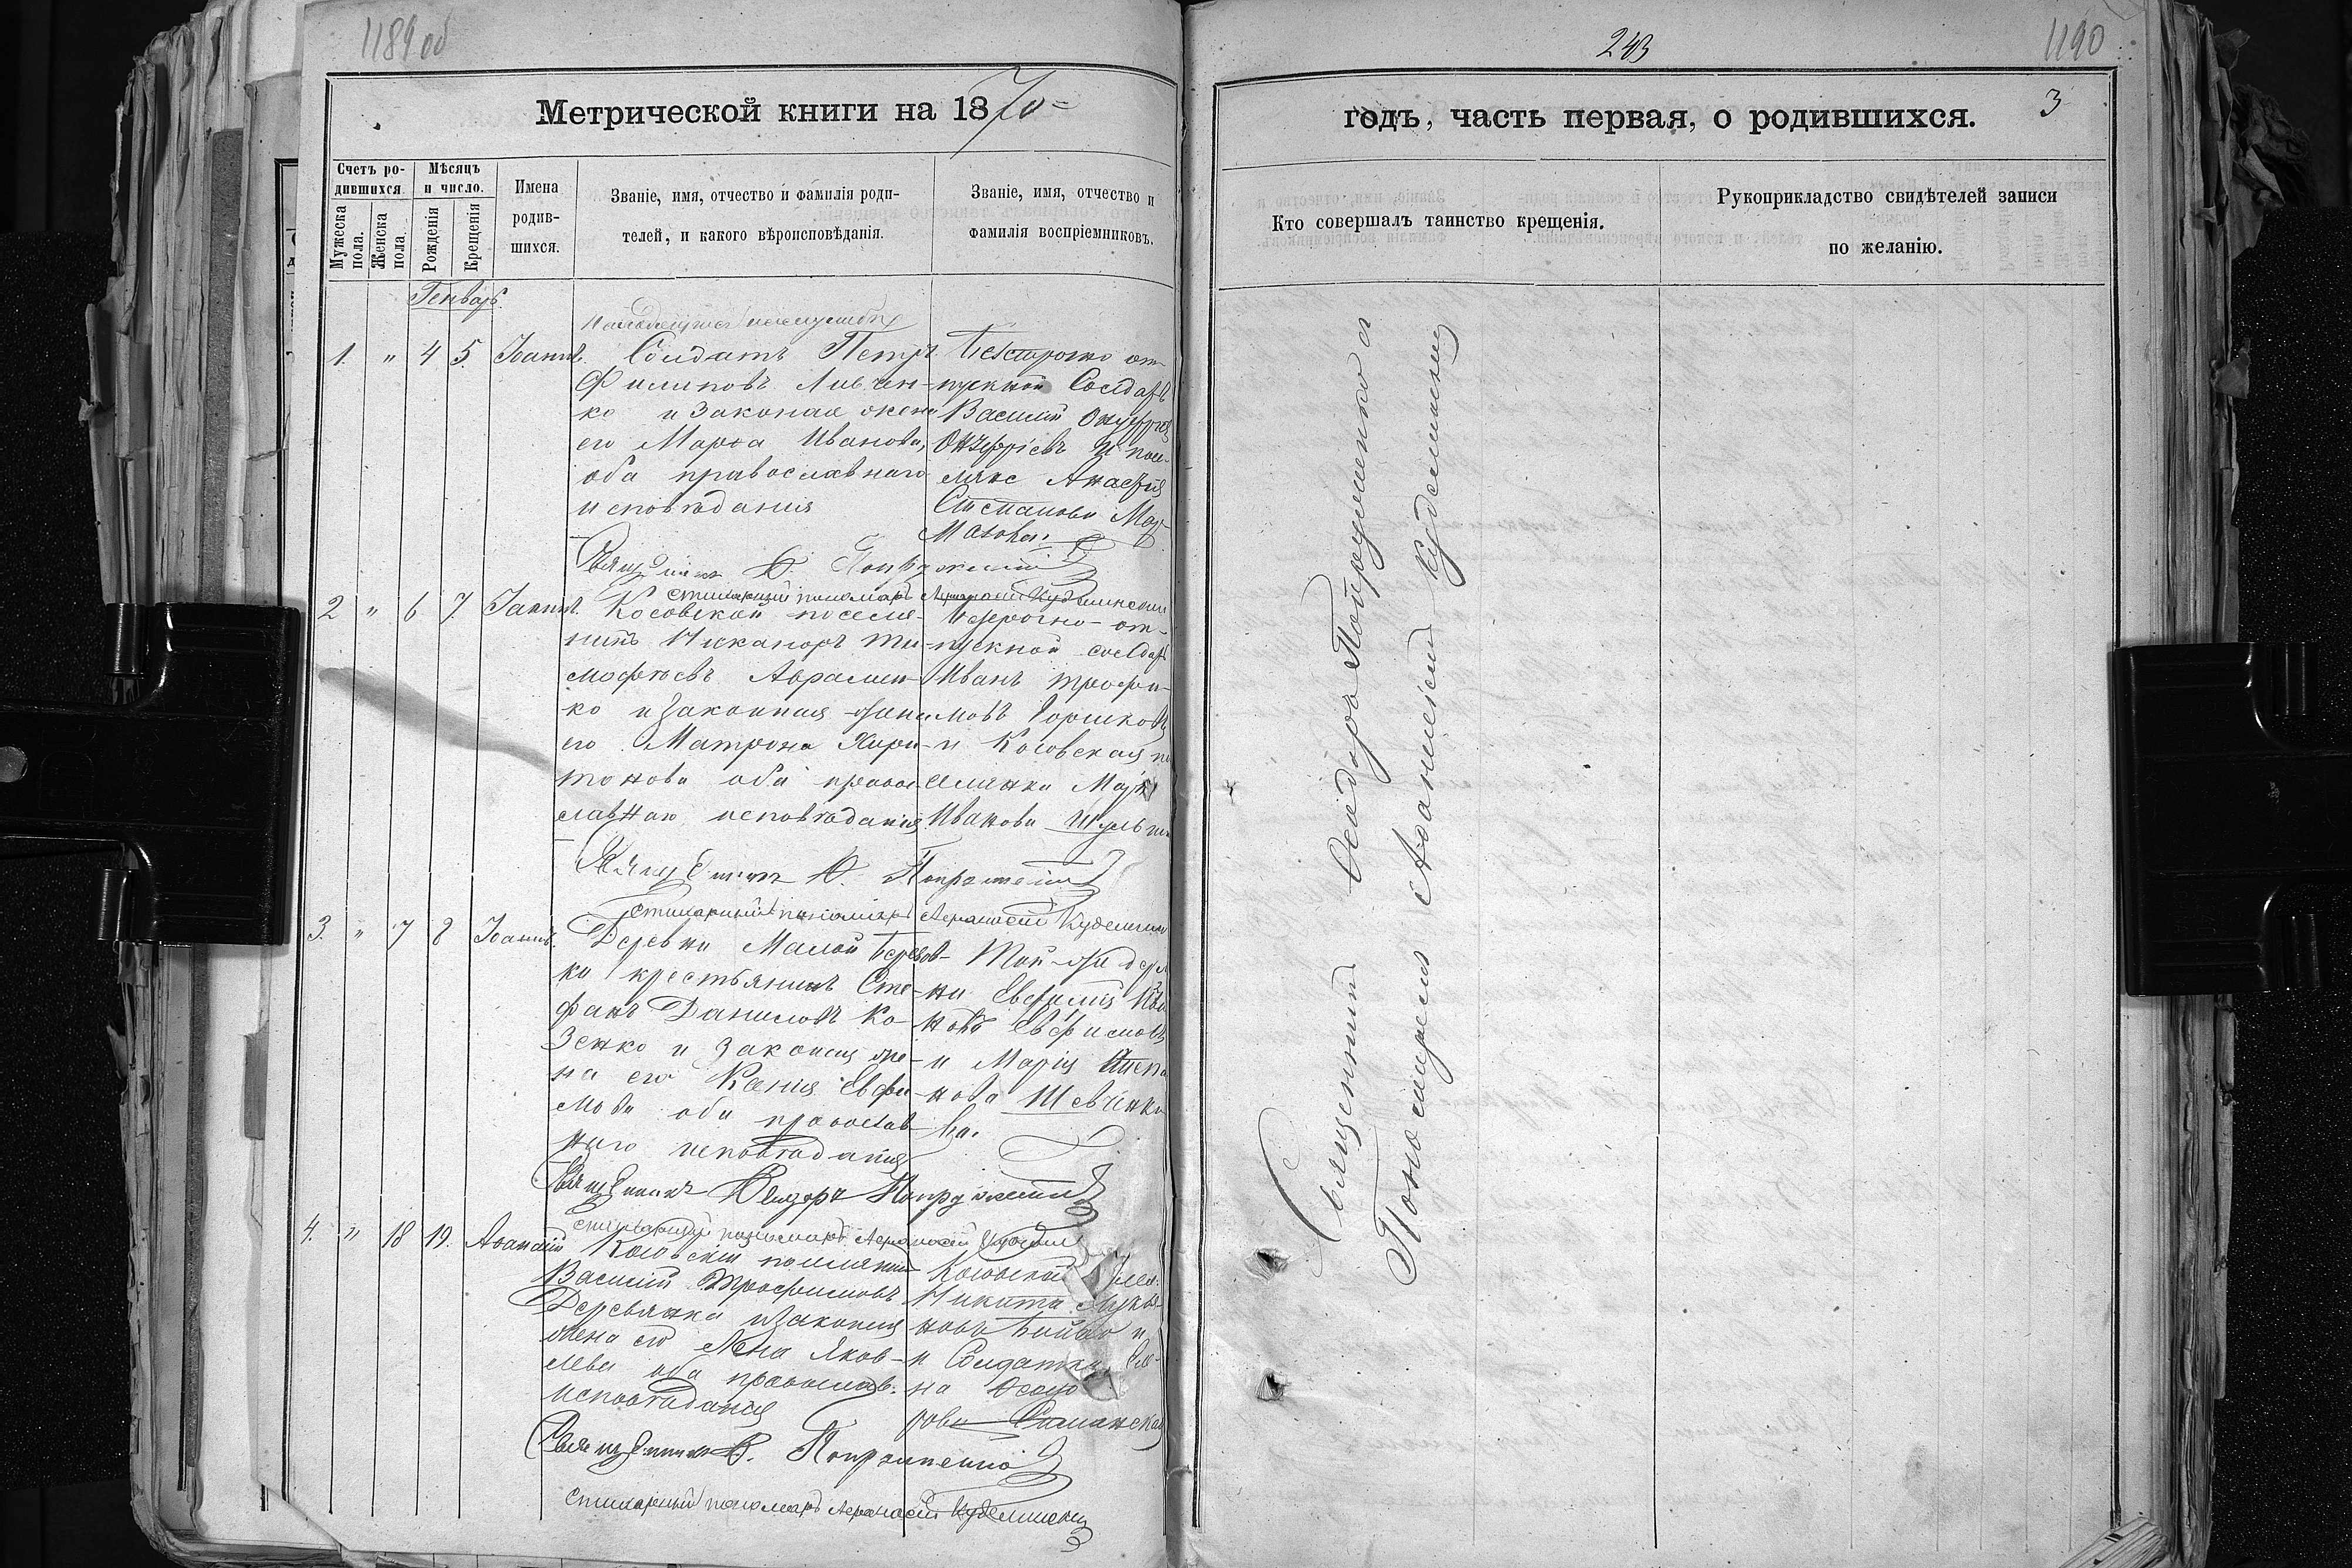 1189об
Метрической книги на 1870
Счетъ ро-
дившихся.
Мужеска
пола.
Женска
пола.
Мѣсяцъ
и число.
Рожденія
Крещенія
Имена
родив-
шихся.
Званіе, имя, отчество и фамилія роди-
телей, и какого вѣроисповѣданія.
Званіе, имя, отчество и
фамилія воспріемниковъ.
Генварь
1. " 4 5. Іоаннъ.
Солдатъ Петръ
Филиповъ Ливчен-
ко и Законая жена
его Марѳа Иванова,
оба православнаго
исповѣданія
Безсрочно от-
пускной Солдатъ
Василій
Онуфріевъ и
Анастасія
Степанова
Священникъ Ѳ. Попруженко
Стихарный пономарь Аѳанасій Куделинскій
2 " 6 7. Іаннъ.
Косовской поселя-
нинъ Никаноръ Ти-
мофѣевъ Авра­мен-
ко и Законная жена
его Матрона Хари-
тонова оба правос-
лавнаго исповѣданія
Безсрочно-от-
пускной солдатъ
Иванъ Трофи-
мовъ Горшковъ
и Косовская по
селянка Марія
Иванова
Священникъ Ѳ. Попруженко
Стихарный пономарь Аѳанасій Куделинскій
3. " 7 8 Іоаннъ.
Деревни Малой Березов-
ки крестьянинъ Сте-
фанъ Даниловъ Ко-
зенко и Законая же-
на его Ксенія Евфи-
мова оба православ-
наго исповѣданія
Той-же дерев
ни Евфимій Ива
новъ Евфимовъ
и Марія Степа
нова Шевченко
ва.
Священникъ Ѳеодоръ Попруженко
Стихарный пономарь Аѳанасій
4. " 18 19. Аѳанасій
Косовскій поселянинъ
Василій Трофимовъ
Деревянка и Законая
жена его Яков-
лева оба православ.
исповѣданія
Косовскій
Никита Лукья-
новъ и
и Солдатка Еле-
на Ѳеодо
рова
Священникъ Ѳ. Попруженко
Стихарный пономарь Аѳанасій Куделинскій
243
1190
годъ, часть первая, о родившихся.
3
Кто совершалъ таинство крещенія.
Рукоприкладство свидѣтелей записи
по желанію.
Священникъ Ѳеодоръ Попруженко а
Пономарь Аѳанасій Куделинскій